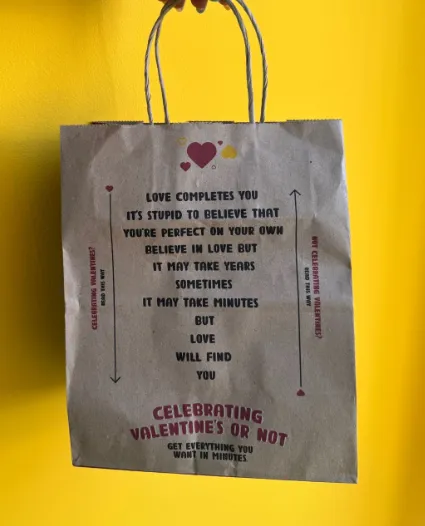 LOVE COMPLETES YOU
IT'S STUPID TO BELIEVE THAT
YOU'RE PERFECT ON YOUR OWN
BELIEVE IN LOVE BUT
IT MAY TAKE YEARS
SOMETIMES
IT MAY TAKE MINUTES
BUT
LOVE
WILL FIND
YOU
CELEBRATING VALENTINES?
READ THIS WAY
NOT CELEBRATING VALENTINES?
READ THIS WAY
CELEBRATING
VALENTINE'S OR NOT
GET EVERYTHING YOU
WANT IN MINUTES.